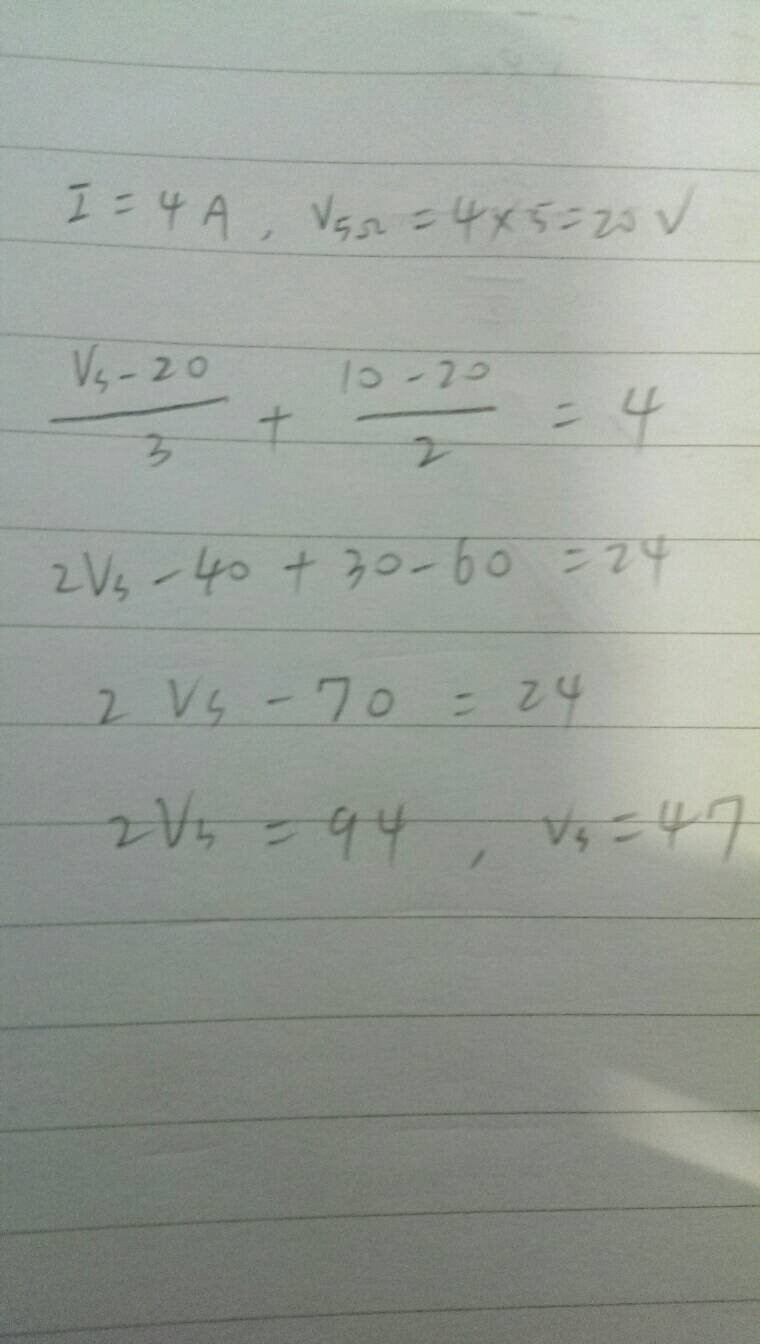 I = 4 A, V5Ω = 4×5=20 V
Vs-20/3 + 10-20/2 = 4
2Vs - 40 + 30 - 60 = 24
2 Vs - 70 = 24
2Vs = 94, Vs = 47